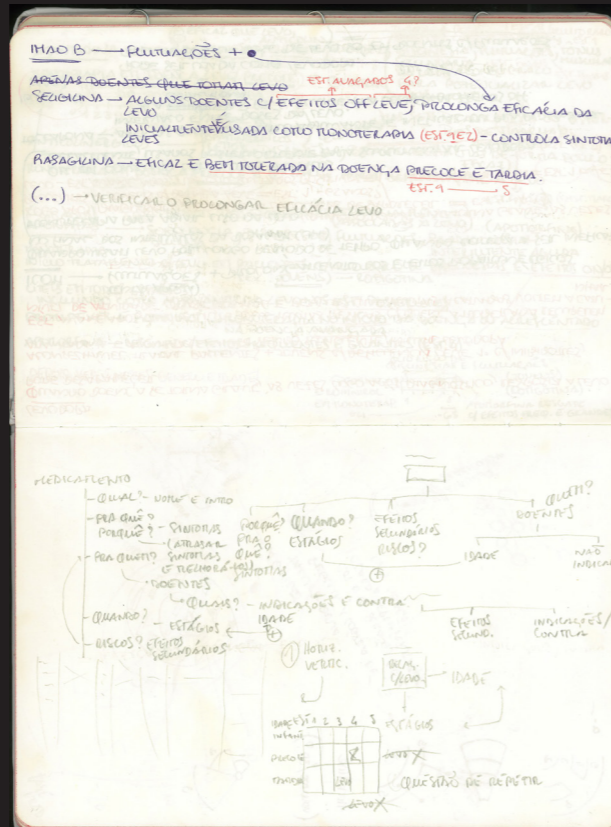 IMAO B → FLUTUAÇÕES + •
APENAS DOENTES QUE TOMAM LEVO
EST. AVANÇADOS 4?
SELIGILINA → ALGUNS DOENTES C/ EFEITOS OFF LEVE, PROLONGA EFICÁCIA DA
LEVO
INICIALMENTE É USADA COMO MONOTERAPIA (EST. 1 E 2) - CONTROLA SINTOMA
LEVES
RASAGILINA → EFICAZ E BEM TOLERADA NA DOENÇA PRECOCE E TARDIA.
EST. 1 — 5
(...) → VERIFICAR O PROLONGAR EFICÁCIA LEVO
MEDICAMENTO
- QUAL? - NOME E INTRO
- PRA QUÊ?
PORQUÊ? - SINTOMAS
(ATRASAR
- PRA QUEM? SINTOMAS
E MELHORÁ-LOS)
DOENTES
QUAIS? - INDICAÇÕES E CONTRA
- QUANDO? - ESTÁGIOS
IDADE
- RISCOS? EFEITOS
SECUNDÁRIOS
PORQUÊ?
PRA O
QUÊ?
SINTOMAS
QUANDO?
ESTÁGIOS
EFEITOS
SECUNDÁRIOS
RISCOS?
QUEM?
DOENTES
IDADE
NÃO
INDICA
EFEITOS
SECUND.
INDICAÇÕES/
CONTRA
1 HORIZ.
VERTIC.
C/LEVO
IDADE
ESTÁGIOS
IDADE EST. 1 2 3 4 5
PRECOCE
TARDIA
LEVO
LEVO X
LEVO X
QUESTÃO DE REPETIR